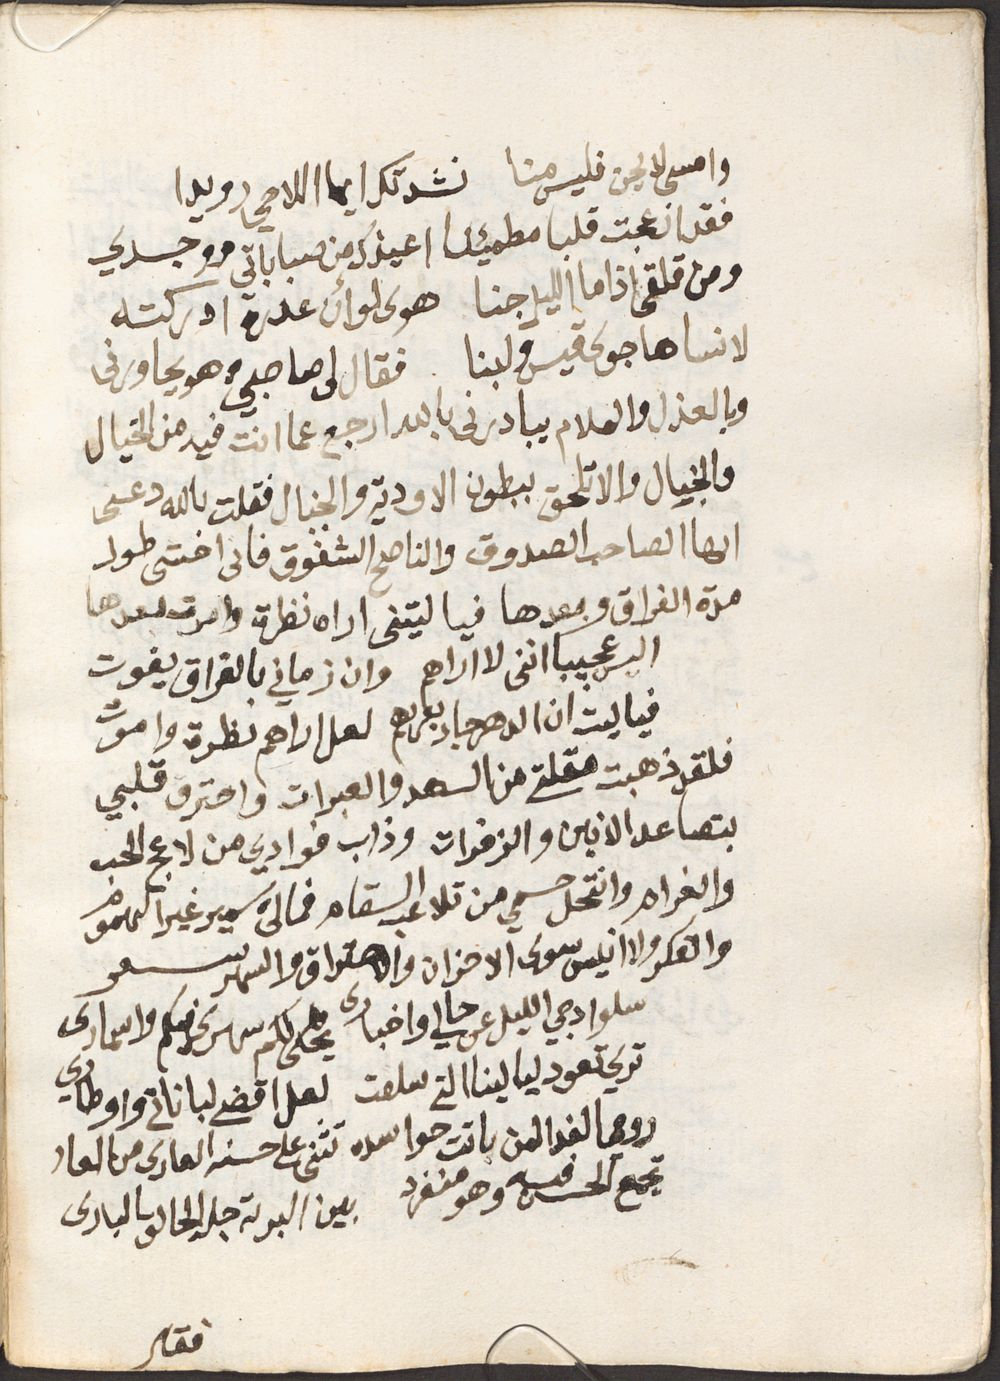 وامسى لا يحن فليس منا نشدتك ايها اللاحي رويدا
فقد ازعجت قلبا مطمئنا اعيذك من صباباتي ووجدي
ومن قلقي اذا ما الليل جنا هوى لو أن عذرة ادركته
لانساها جوى قيس ولبنا فقال لي صاحبي وهو يحاورني
وبالعذل والملام يبادرني بالله ارجع عما انت فيه من الخيال
والخيال والا تلحق ببطون الاودية والجبال فقلت بالله دعني
ايها الصاحب الصدوق والناصح الشفوق فاني اخشى طول
مدة الفراق وبعدها فيا ليتني اراه نظرة واموت بعدها
اليس عجيبا انني لا اراهم وان زماني بالفراق يفوت
فيا ليت ان الدهر جاد بقربهم لعل اراهم نظرة واموتُ
فلقد ذهبت مقلتي من السهد والعبرات واحترق قلبي
بتصاعد الانين والزفرات وذاب فوادي من لاعج الحب
والغرام وانتحل جسمي من تلاعب السقام فمالي سمير غير الهموم
والفكر ولا انيس سوى الاحزان والاحتراق والسهر شعر
سلوا دجي الليل عن حالي واخباري يحكي لكم سهري فيكم واسماري
تري تعود ليالينا التي سلفت لعل اقضي لباناتي واوطاري
روحي الفدا لمن باتت حواسده تثني علي حسنه العاري من العار
تجمع الحسن فيه وهو منفرد بين البرية جل الخالق الباري
فقام